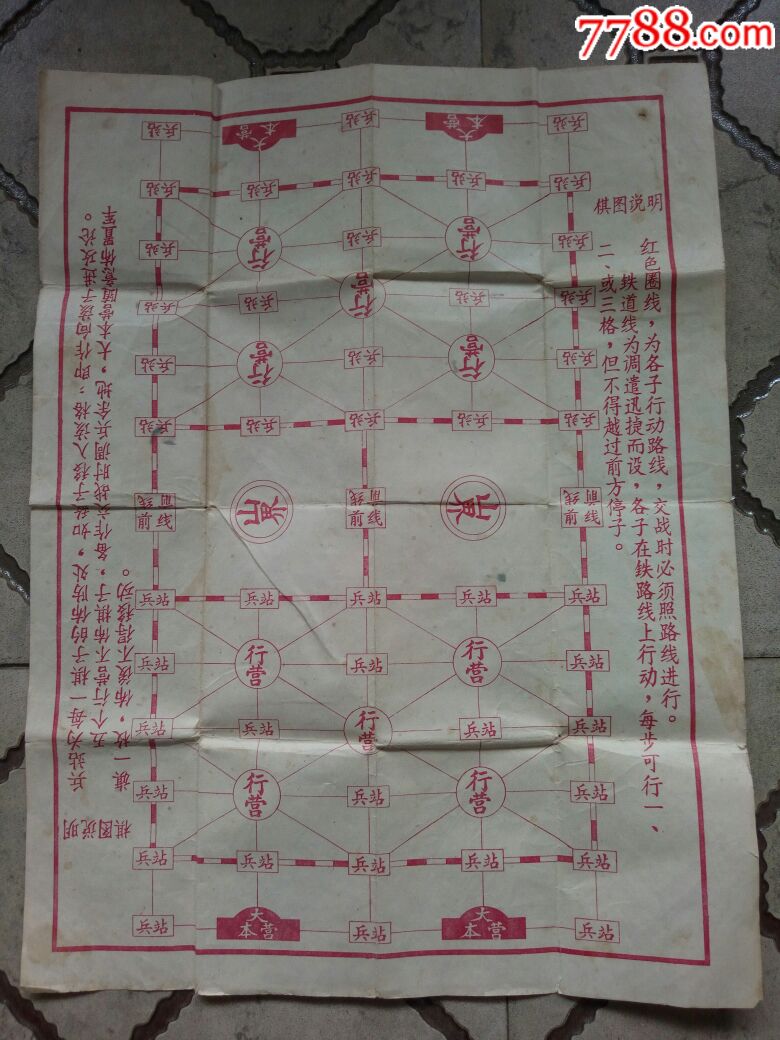 7788.com
兵站 大本营 兵站 大本营 兵站
兵站 兵站 兵站 兵站 兵站
兵站 行营 兵站 行营 兵站
兵站 兵站 行营 兵站 兵站
兵站 行营 兵站 行营 兵站
兵站 兵站 兵站 兵站 兵站
前线 前线 前线
山界 山界
前线 前线 前线
兵站 兵站 兵站 兵站 兵站
兵站 行营 兵站 行营 兵站
兵站 兵站 行营 兵站 兵站
兵站 行营 兵站 行营 兵站
兵站 兵站 兵站 兵站 兵站
兵站 大本营 兵站 大本营 兵站
棋图说明
红色圈线，为各子行动路线，交战时必须照路线进行。
铁道线为调遣迅捷而设，各子在铁路线上行动，每步可行一、
二、或三格，但不得越过前方停子。
棋图说明
兵站为每一棋子的佈防处，如敌子移入该格；即作向该子进攻论。
五个行营不佈棋子，备作交战时调兵余地，大本营随意佈置军
旗一枚，佈後不得移动。